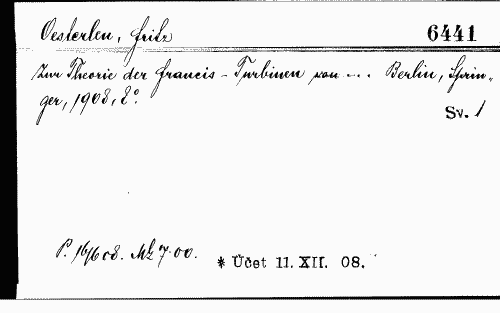 Oesterlen, Fritz 6441
Zur Theorie der Francis-Turbinen von ... Berlin, Sprin-
ger, 1908, 8°.
Sv. 1
P. 16/6 08. Mk 7.00.
* Účet 11. XII. 08.